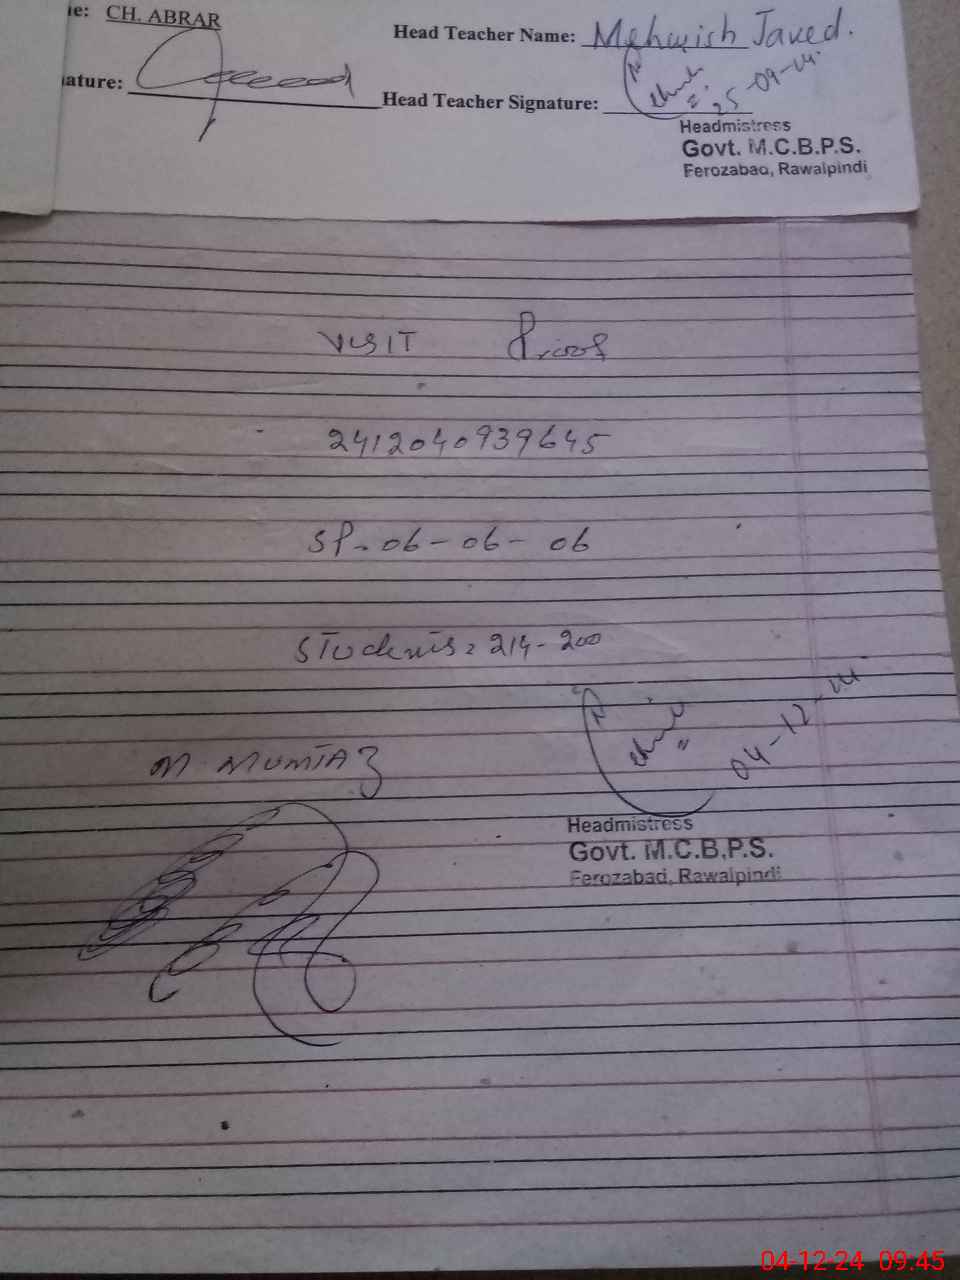 me: CH. ABRAR
Head Teacher Name: Mehwish Javed.
ature:
Head Teacher Signature:
25-09-24.
Headmistress
Govt. M.C.B.P.S.
Ferozabad, Rawalpindi
VISIT Proof
2412040939645
SP-06-06-06
Students: 214-200
M MUMTAZ
04-12-24.
Headmistress
Govt. M.C.B.P.S.
Ferozabad, Rawalpindi
04-12-24 09:45